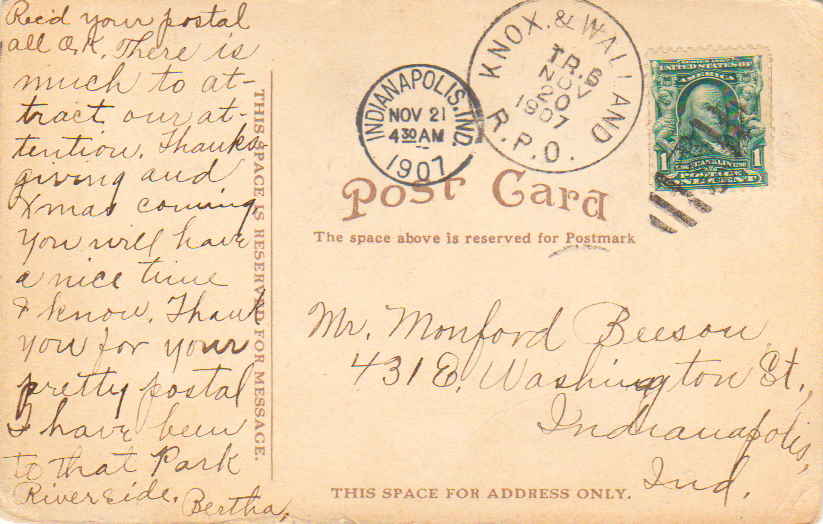 Rec'd your postal
all O.K. There is
much to at-
tract our at-
tention. Thanks-
giving and
Xmas coming
You will have
a nice time
I know. Thank
you for your
pretty postal
I have been
to that Park
Riverside. Bertha.
THIS SPACE IS RESERVED FOR MESSAGE.
INDIANAPOLIS, IND.
NOV 21
4 30 AM
1907
KNOX. & WALLAND
TR. 6
NOV
20
1907
R.P.O.
UNITED STATES OF
AMERICA
FRANKLIN
1 1
POSTAGE
ONE CENT
Post Card
The space above is reserved for Postmark
Mr. Monford Beeson
431 E. Washington St.,
Indianapolis,
Ind.
THIS SPACE FOR ADDRESS ONLY.